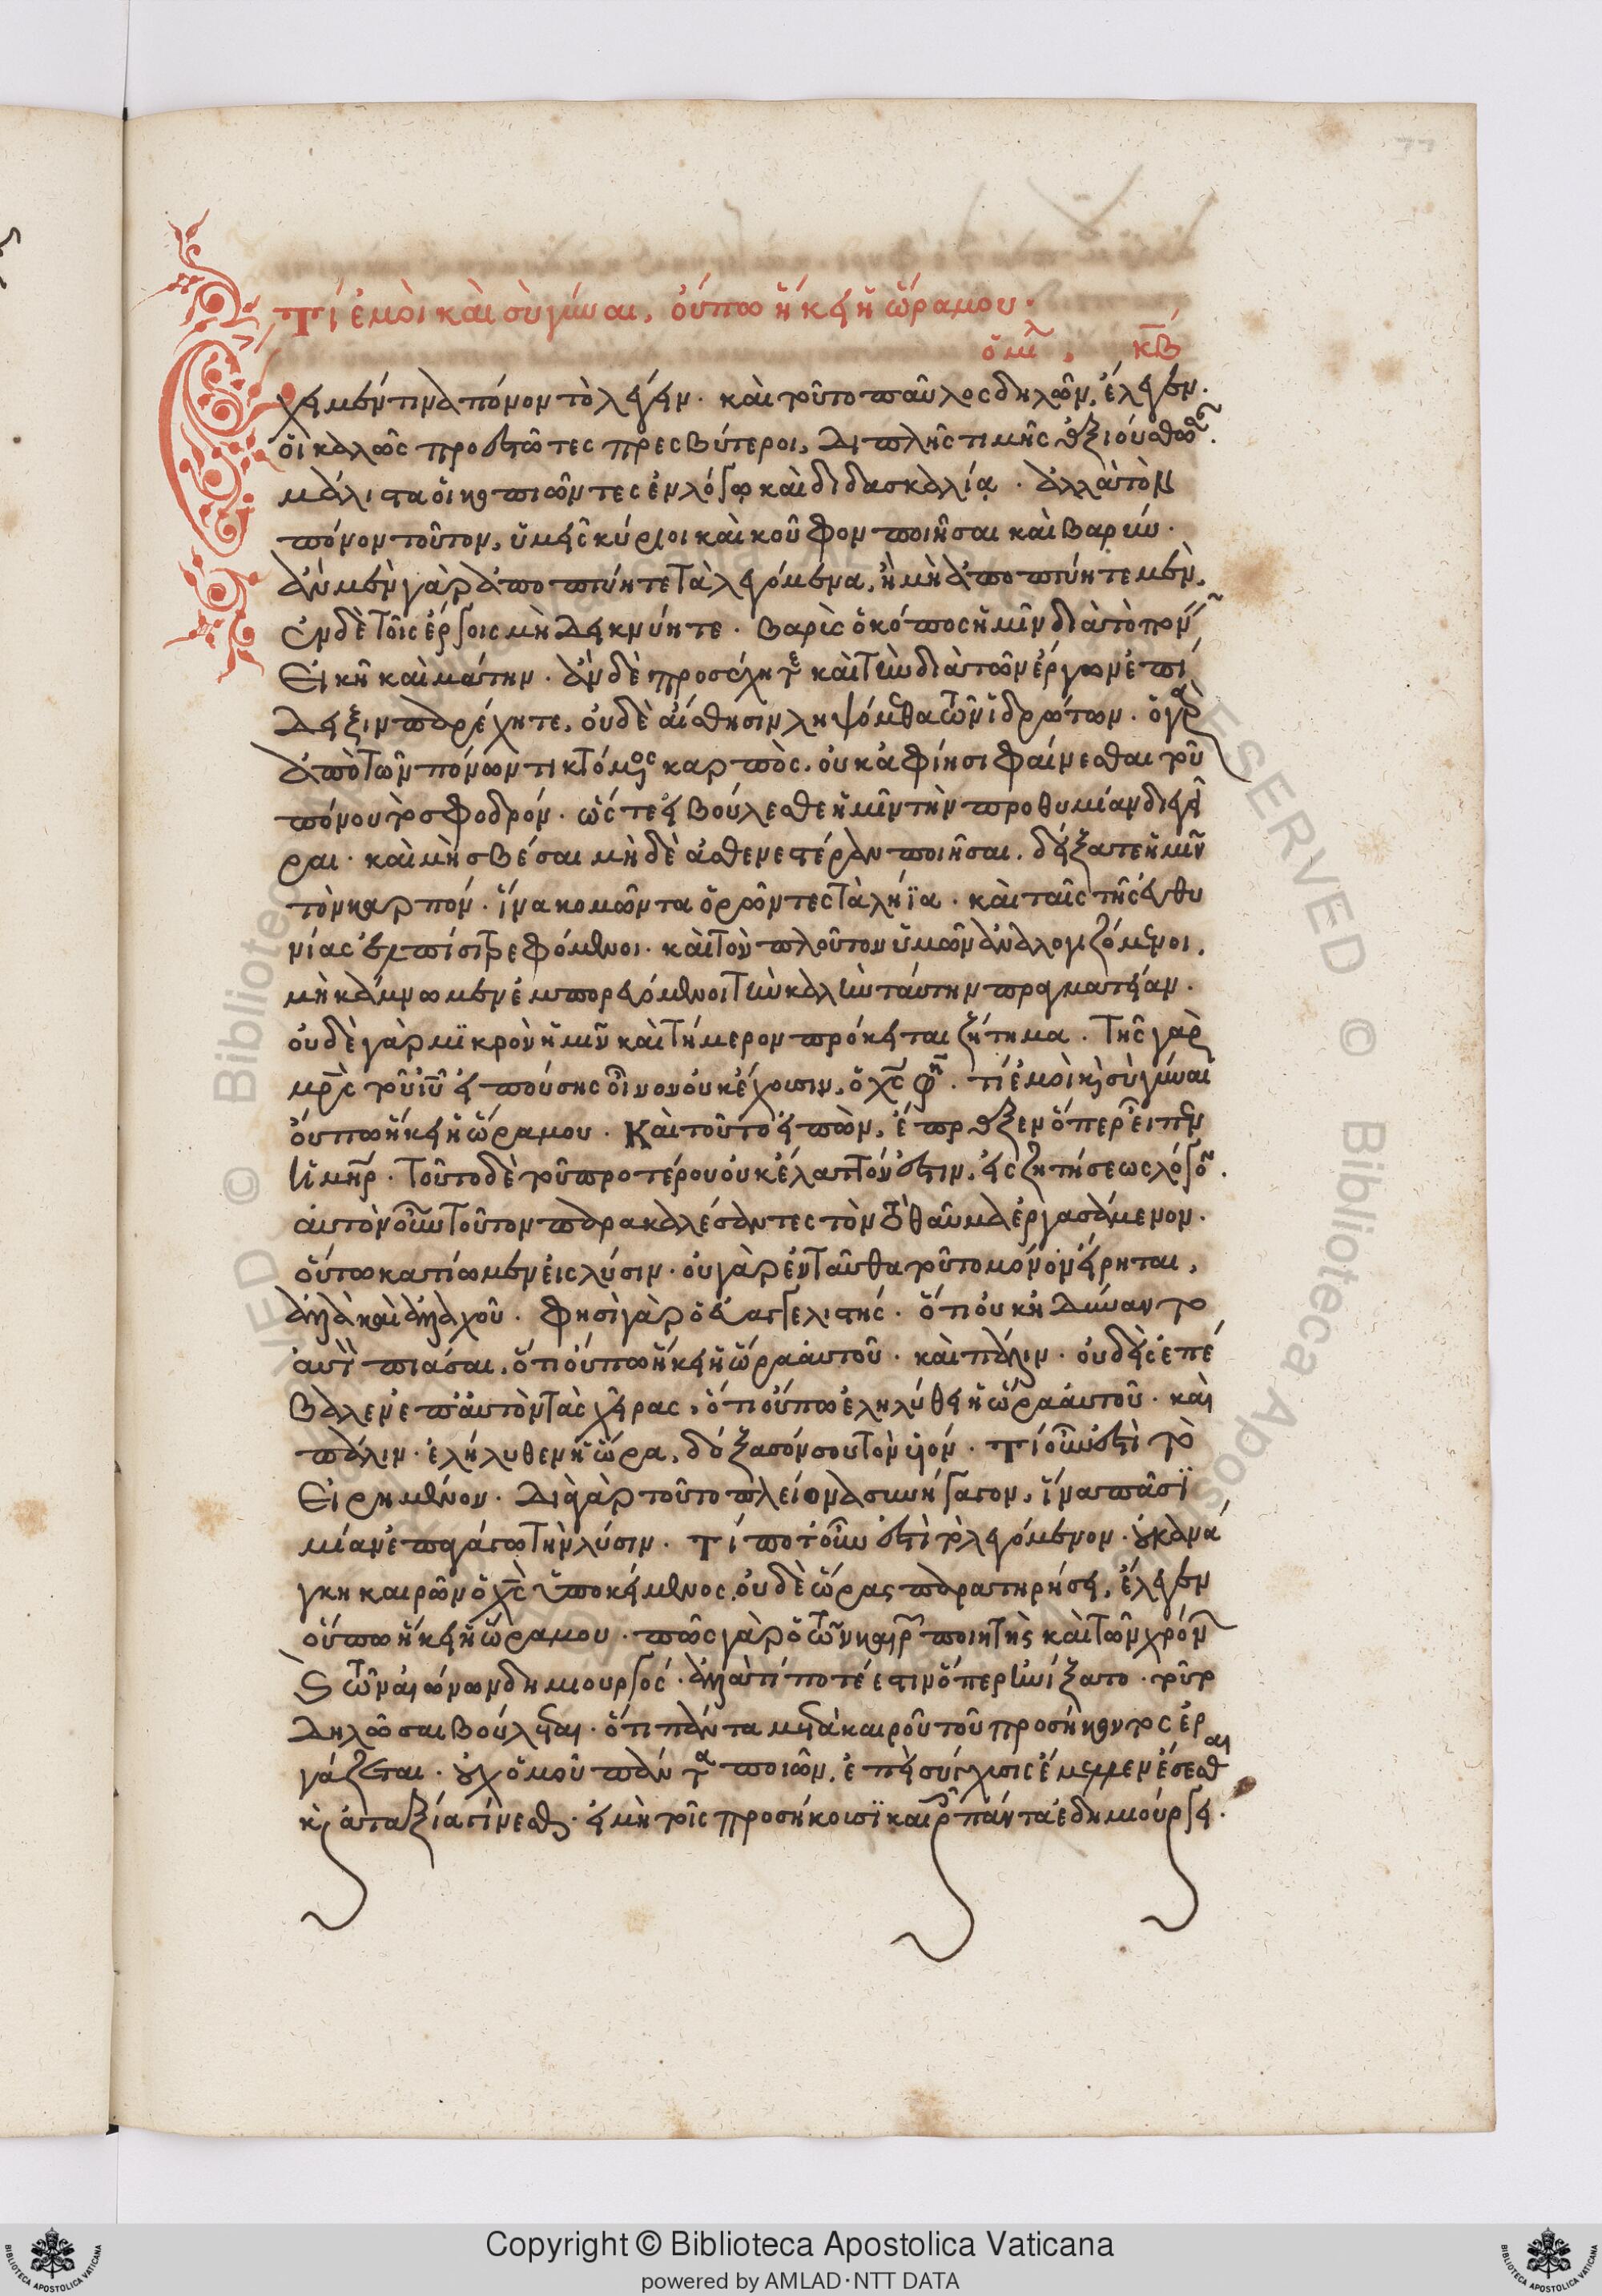 Τί ἐμοὶ καὶ σὺ γύναι, οὔπω ἥκει ἡ ὥρα μου.
ὁμι, κβ
Ἔχει μέν τινα πόνον τὸ λέγειν. καὶ τοῦτο παῦλος δηλῶν, ἔλεγεν.
οἱ καλῶς προεστῶτες πρεσβύτεροι, διπλῆς τιμῆς ἀξιούσθωσαν.
μάλιστα οἱ κοπιῶντες ἐν λόγῳ καὶ διδασκαλίᾳ. ἀλλὰ τὸν
πόνον τοῦτον, ὑμεῖς κύριοι καὶ κοῦφον ποιῆσαι καὶ βαρύν.
ἂν μὲν γὰρ ἀποπτύητε τὰ λεγόμενα, ἢ μὴ ἀποπτύητε μὲν,
ἐν δὲ τοῖς ἔργοις μὴ δεικνύητε. βαρὺς ὁ κόπος ἡμῖν διὰ τὸ πονεῖν
εἰκῆ καὶ μάτην. ἂν δὲ προσέχητε καὶ τὴν διὰ τῶν ἔργων ἐπί
δειξιν παρέχητε, οὐδὲ αἴσθησιν ληψόμεθα τῶν ἱδρώτων. ὁ γὰρ
ἀπὸ τῶν πόνων τικτόμενος καρπὸς, οὐκ ἀφίησι φαίνεσθαι τοῦ
πόνου τὸ σφοδρόν. ὥστε εἰ βούλεσθε ἡμῖν τὴν προθυμίαν διεγεῖ
ραι. καὶ μὴ σβέσαι μηδὲ ἀσθενεστέραν ποιῆσαι, δείξατε ἡμῖν
τὸν καρπόν. ἵνα κομῶντα ὁρῶντες τὰ λήϊα. καὶ ταῖς τῆς εὐθυ
νίας ἐλπίσι τρεφόμενοι. καὶ τὸν πλοῦτον ὑμῶν ἀναλογιζόμενοι,
μὴ κάμνωμεν ἐμπορευόμενοι τὴν καλὴν ταύτην πραγματείαν.
οὐδὲ γὰρ μικρὸν ἡμῖν καὶ τήμερον πρόκειται ζήτημα. τῆς γὰρ
μρς τοῦ ἰυ εἰπούσης οἶνον οὐκ ἔχουσιν, ὁ χς φη. τί ἐμοὶ κ σὺ γύναι
οὔπω ἥκει ἡ ὥρα μου. Καὶ τοῦτο εἰπὼν, ἔπραξεν ὅπερ εἶπεν
ἡ μηρ. τοῦτο δὲ τοῦ προτέρου οὐκ ἔλαττόν ἐστιν, εἰς ζητήσεως λόγον.
αὐτὸν οὖν τοῦτον παρακαλέσαντες τὸν τὸ θαῦμα ἐργασάμενον.
οὕτω κατίωμεν εἰς λύσιν. οὐ γὰρ ἐνταῦθα τοῦτο μόνον εἴρηται,
ἀλλὰ καὶ ἀλλαχοῦ. φησὶ γὰρ ὁ εὐαγγελιστής. ὅτι οὐκ ἠδύναντο
αὐτὸν πιάσαι, ὅτι οὔπω ἥκει ἡ ὥρα αὐτοῦ. καὶ πάλιν. οὐδεὶς ἐπέ
βαλεν ἐπ' αὐτὸν τὰς χεῖρας, ὅτι οὔπω ἐληλύθει ἡ ὥρα αὐτοῦ. καὶ
πάλιν. ἐλήλυθεν ἡ ὥρα, δόξασόν σου τὸν υἱόν. Τί οὖν ἐστὶ τὸ
εἰρημένον. διὰ γὰρ τοῦτο πλείονα συνήγαγον, ἵνα πᾶσι
μίαν ἐπαγάγω τὴν λύσιν. Τί ποτ' οὖν ἐστὶ τὸ λεγόμενον. οὐκ ἀνά
γκῃ καιρῶν ὁ χς ὑποκείμενος, οὐδὲ ὥρας παρατηρήσει, ἔλεγεν
οὔπω ἥκει ἡ ὥρα μου. πῶς γὰρ ὁ τῶν καιρῶν ποιητὴς καὶ τῶν χρόνων
κ τῶν αἰώνων δημιουργός. ἀλλὰ τί ποτέ ἐστιν ὅπερ ᾐνίξατο. τοῦτο
δηλῶσαι βούλεται. ὅτι πάντα μετὰ καιροῦ τοῦ προσήκοντος ἐρ
γάζεται. οὐχ ὁμοῦ πάντα ποιῶν, ἐπεὶ σύγχυσις ἔμελλεν ἔσεσθαι
κ ἀταξία γίνεσθαι. εἰ μὴ τοῖς προσήκουσι καιροῖς πάντα ἐδημιούργει.
Copyright © Biblioteca Apostolica Vaticana
powered by AMLAD·NTT DATA